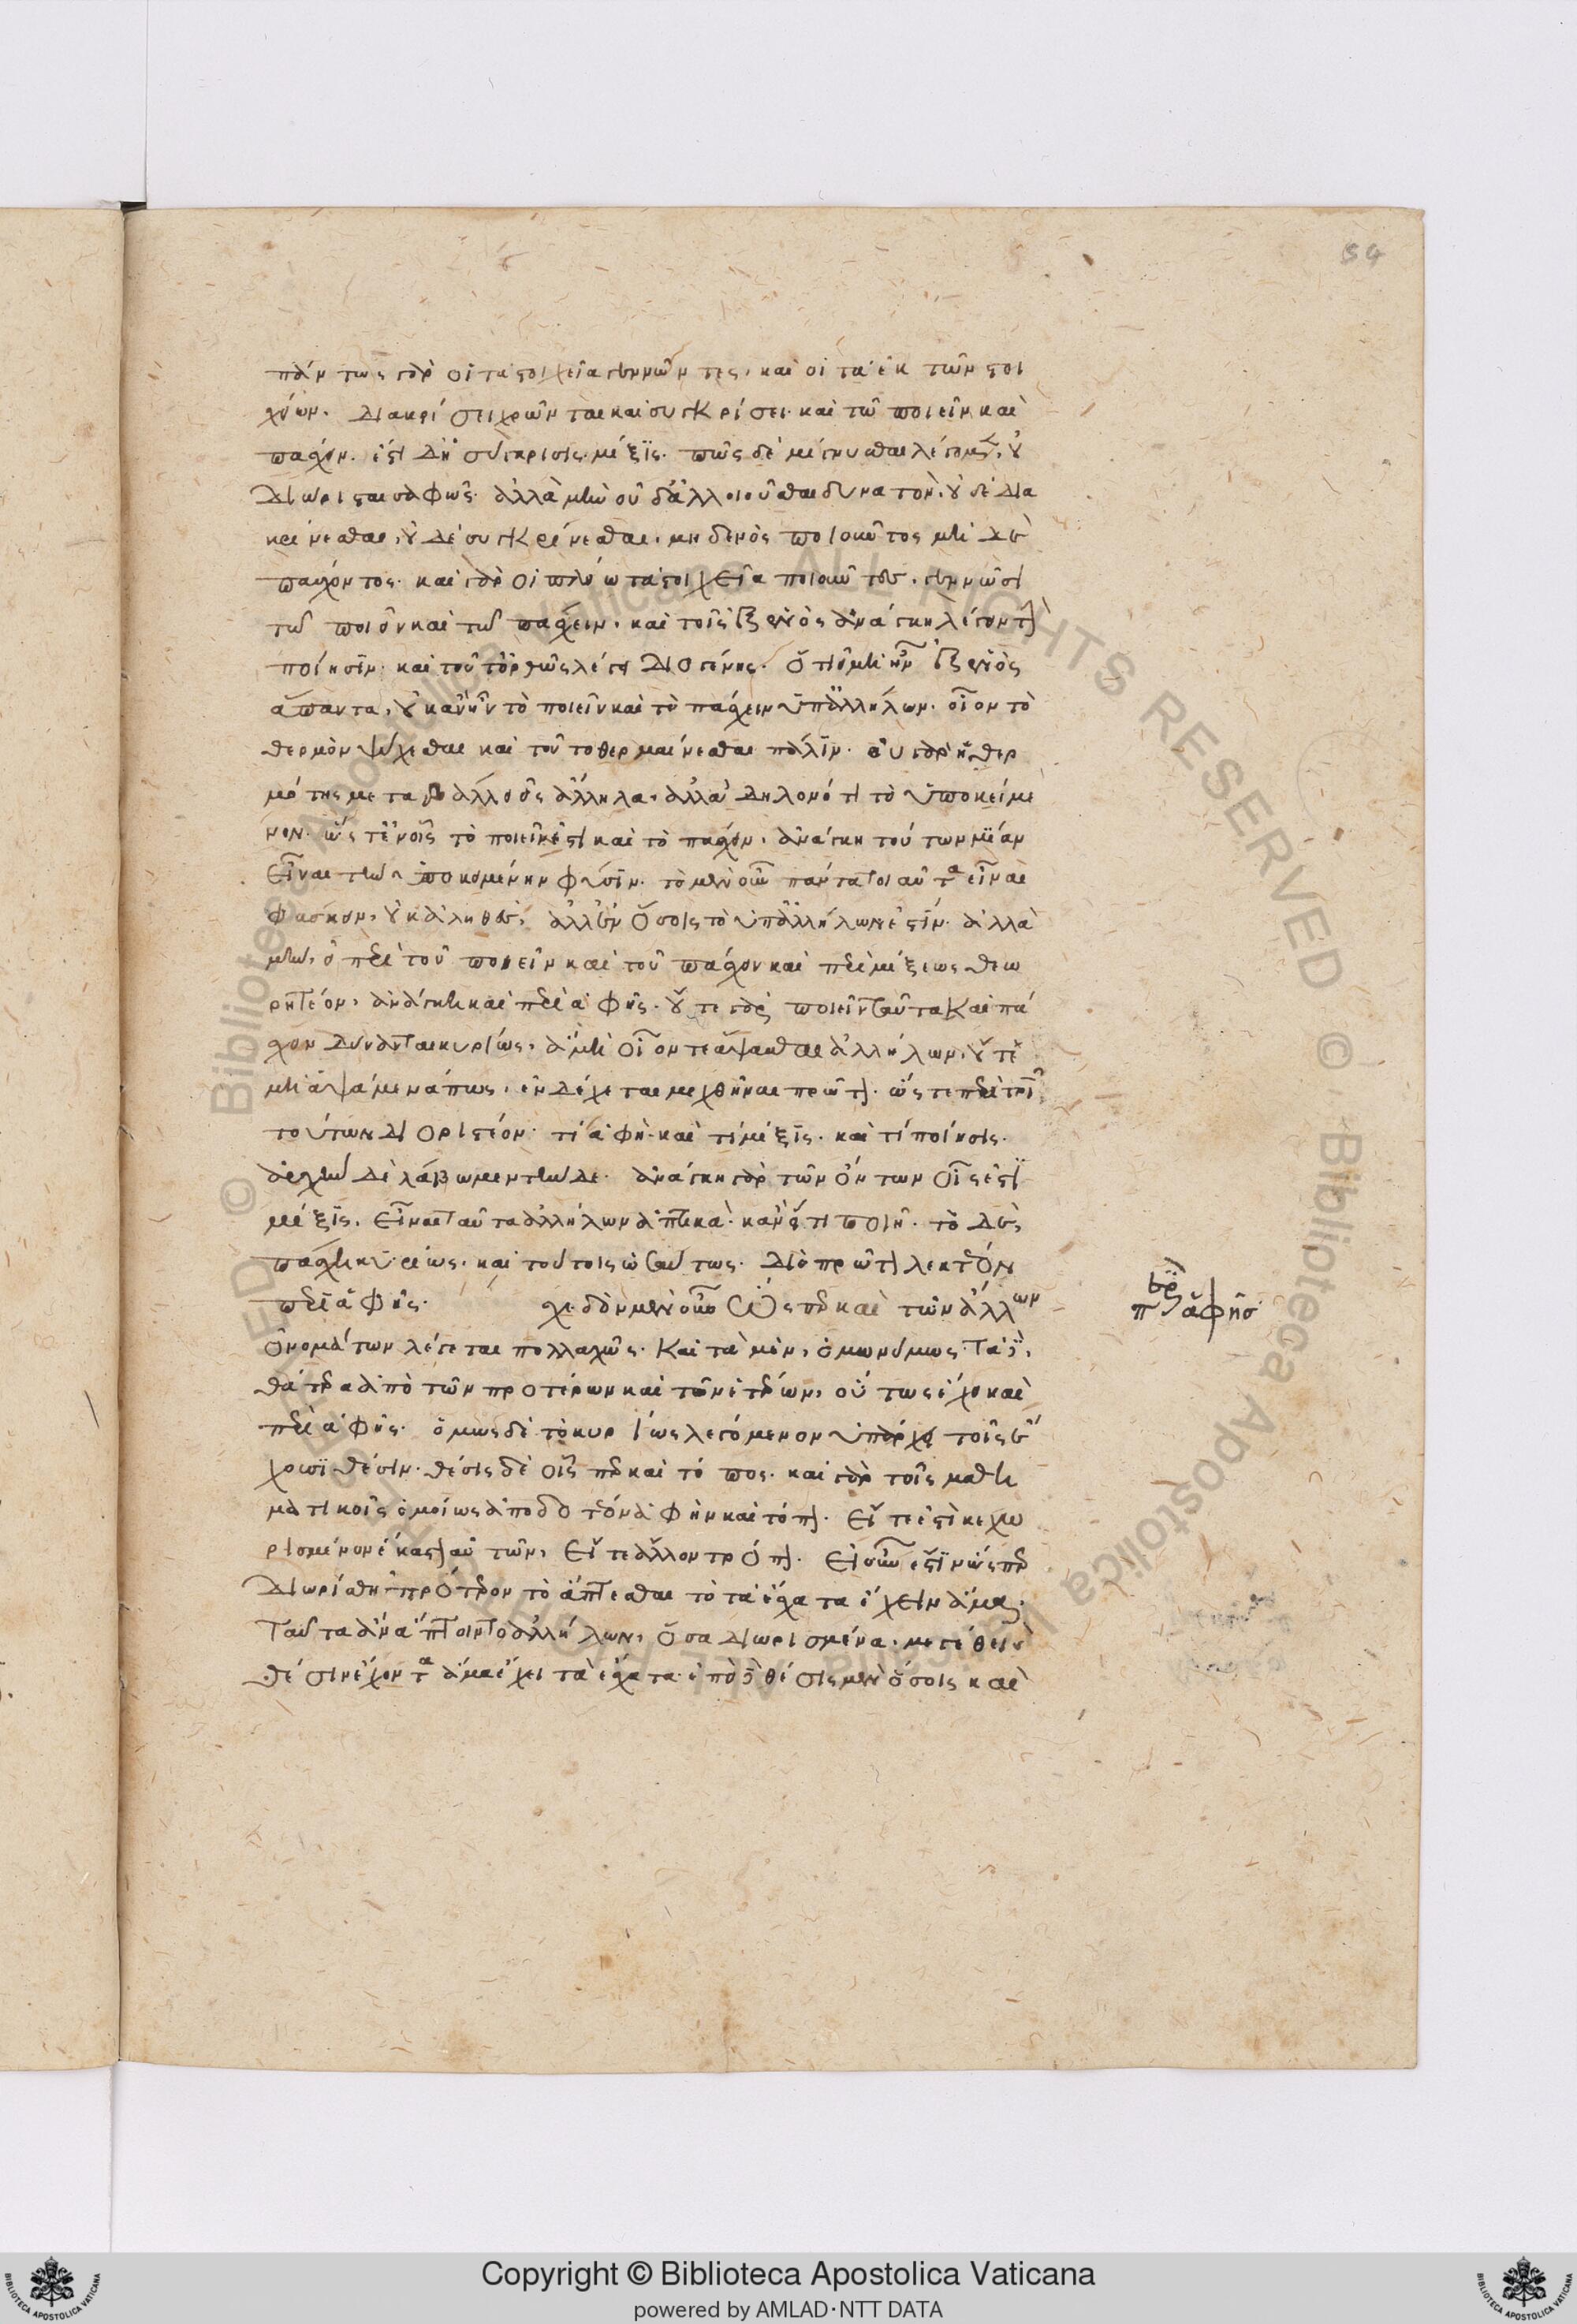 54
πάντως γὰρ οἱ τὰ στοιχεῖα γεννῶντες, καὶ οἱ τὰ ἐκ τῶν στοι
χείων. διακρίσει χρῶνται καὶ συγκρίσει. καὶ τῷ ποιεῖν καὶ
πάσχειν. ἔστι δὴ σύγκρισις μίξις. πῶς δὲ μίγνυσθαι λέγομεν, οὐ
διώρισται σαφῶς. ἀλλὰ μὴν οὐδ' ἀλλοιοῦσθαι δυνατὸν, οὐδὲ δια
κρίνεσθαι, οὐδὲ συγκρίνεσθαι, μηδενὸς ποιοῦντος μηδὲ
πάσχοντος. καὶ γὰρ οἱ πλείω τὰ στοιχεῖα ποιοῦντες, γεννῶσι
τῷ ποιεῖν καὶ τῷ πάσχειν. καὶ τοῖς ἐξ ἑνὸς ἀνάγκη λέγειν τὴν
ποίησιν. καὶ τοῦτ' ὀρθῶς λέγει Διογένης. ὅτι εἰ μὴ ἦν ἐξ ἑνὸς
ἅπαντα, οὐκ ἂν ἦν τὸ ποιεῖν καὶ τὸ πάσχειν ὑπ' ἀλλήλων. οἷον τὸ
θερμὸν ψύχεσθαι καὶ τοῦτο θερμαίνεσθαι πάλιν. οὐ γὰρ ἡ θερ
μότης μεταβάλλει εἰς ἄλληλα, ἀλλὰ δηλονότι τὸ ὑποκείμε
νον. ὥστ' ἐν οἷς τὸ ποιεῖν ἐστὶ καὶ τὸ πάσχειν, ἀνάγκη τούτων μίαν
εἶναι τὴν ὑποκειμένην φύσιν. τὸ μὲν οὖν πάντα τοιαῦτα εἶναι
φάσκειν, οὐκ ἀληθὲς, ἀλλ' ἐν ὅσοις τὸ ὑπ' ἀλλήλων ἐστίν. ἀλλὰ
μὴν, εἰ περὶ τοῦ ποιεῖν καὶ τοῦ πάσχειν καὶ περὶ μίξεως θεω
ρητέον, ἀνάγκη καὶ περὶ ἁφῆς. οὔτε γὰρ ποιεῖν ταῦτα καὶ πά
σχειν δύναται κυρίως, ἃ μὴ οἷόν τε ἅψασθαι ἀλλήλων, οὔτε
μὴ ἁψάμενά πως, ἐνδέχεται μιχθῆναι πρῶτον. ὥστε περὶ τριῶν
τούτων διοριστέον. τί ἁφὴ. καὶ τί μίξις. καὶ τί ποίησις.
ἀρχὴν δὲ λάβωμεν τήνδε. ἀνάγκη γὰρ τῶν ὄντων οἷς ἐστὶ
μίξις, εἶναι ταῦτα ἀλλήλων ἁπτικὰ. κἂν εἴ τι ποιεῖ. τὸ δὲ
πάσχει κυρίως. καὶ τούτοις ὡσαύτως. διὸ πρῶτον λεκτέον
περὶ ἁφῆς. σχεδὸν μὲν οὖν ὥσπερ καὶ τῶν ἄλλων
περὶ ἁφῆς
ὀνομάτων λέγεται πολλαχῶς. καὶ τὰ μὲν, ὁμωνύμως. τὰ δὲ,
θάτερα ἀπὸ τῶν προτέρων καὶ τῶν ἑτέρων, οὕτως ἔχει καὶ
περὶ ἁφῆς. ὅμως δὲ τὸ κυρίως λεγόμενον ὑπάρχει τοῖς ἔ
χουσι θέσιν. θέσις δὲ οἷς περ καὶ τόπος. καὶ γὰρ τοῖς μαθη
ματικοῖς ὁμοίως ἀποδοτέον ἁφὴν καὶ τόπον. εἴτε ἐστὶ κεχω
ρισμένον ἕκαστον αὐτῶν, εἴτε ἄλλον τρόπον. εἰ οὖν ἐστὶν ὥσπερ
διωρίσθη πρότερον τὸ ἅπτεσθαι τὸ τὰ ἔσχατα ἔχειν ἅμα,
ταῦτα ἂν ἅπτοιντο ἀλλήλων, ὅσα διωρισμένα μεγέθη καὶ
θέσιν ἔχοντα ἅμα ἔχει τὰ ἔσχατα. ἐπεὶ δὲ θέσις μὲν ὅσοις καὶ